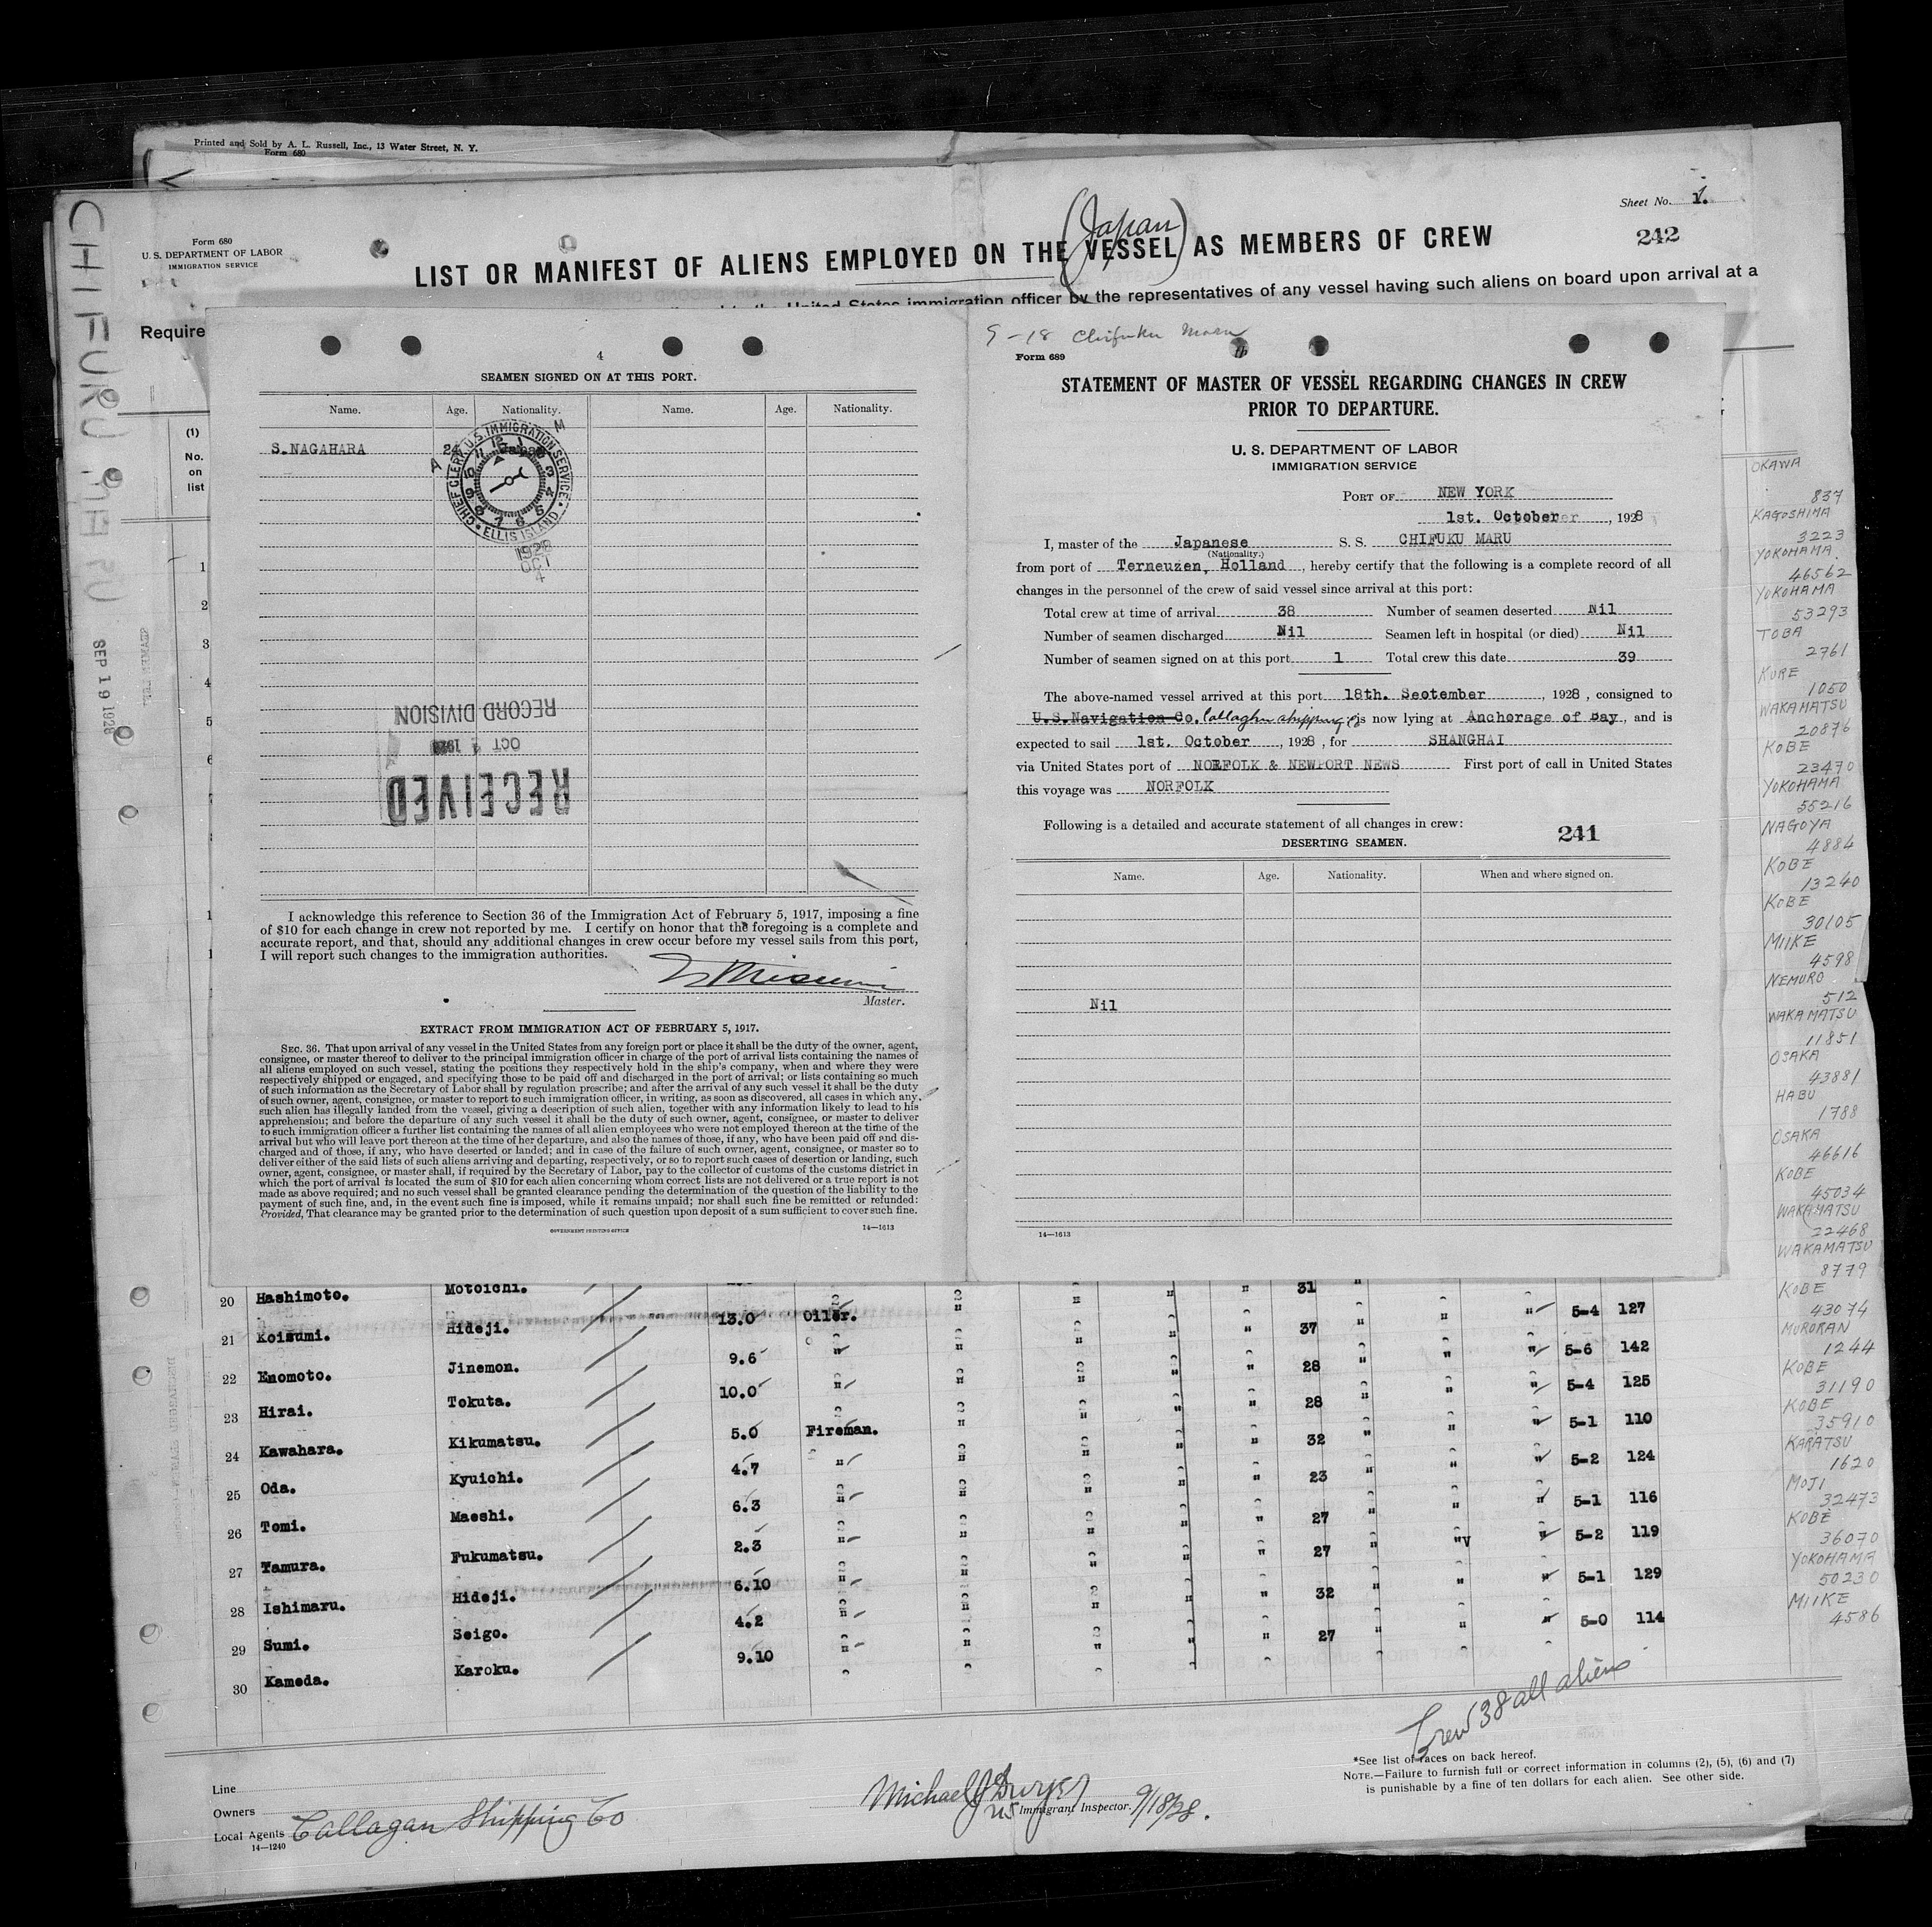 Printed and Sold by A. L. Russell, Inc., 13 Water Street, N. Y.
Form 680
Sheet No. 1.
Form 680
U. S. DEPARTMENT OF LABOR
IMMIGRATION SERVICE
(Japan)
LIST OR MANIFEST OF ALIENS EMPLOYED ON THE VESSEL AS MEMBERS OF CREW
242
United States immigration officer by the representatives of any vessel having such aliens on board upon arrival at a
Require
CHIFUKU MARU
SEP 19 1928
(1)
No.
on
list
1
2
3
4
5
6
4
SEAMEN SIGNED ON AT THIS PORT.
Name. Age. Nationality. Name. Age. Nationality.
S.NAGAHARA 24
CHIEF CLERK U.S. IMMIGRATION SERVICE
ELLIS ISLAND
A M
1928
OCT
4
RECORD DIVISION
OCT 4 1928
RECEIVED
I acknowledge this reference to Section 36 of the Immigration Act of February 5, 1917, imposing a fine
of $10 for each change in crew not reported by me. I certify on honor that the foregoing is a complete and
accurate report, and that, should any additional changes in crew occur before my vessel sails from this port,
I will report such changes to the immigration authorities.
Master.
EXTRACT FROM IMMIGRATION ACT OF FEBRUARY 5, 1917.
SEC. 36. That upon arrival of any vessel in the United States from any foreign port or place it shall be the duty of the owner, agent,
consignee, or master thereof to deliver to the principal immigration officer in charge of the port of arrival lists containing the names of
all aliens employed on such vessel, stating the positions they respectively hold in the ship's company, when and where they were
respectively shipped or engaged, and specifying those to be paid off and discharged in the port of arrival; or lists containing so much
of such information as the Secretary of Labor shall by regulation prescribe; and after the arrival of any such vessel it shall be the duty
of such owner, agent, consignee, or master to report to such immigration officer, in writing, as soon as discovered, all cases in which any
such alien has illegally landed from the vessel, giving a description of such alien, together with any information likely to lead to his
apprehension; and before the departure of any such vessel it shall be the duty of such owner, agent, consignee, or master to deliver
to such immigration officer a further list containing the names of all alien employees who were not employed thereon at the time of the
arrival but who will leave port thereon at the time of her departure, and also the names of those, if any, who have been paid off and dis-
charged and of those, if any, who have deserted or landed; and in case of the failure of such owner, agent, consignee, or master so to
deliver either of the said lists of such aliens arriving and departing, respectively, or so to report such cases of desertion or landing, such
owner, agent, consignee, or master shall, if required by the Secretary of Labor, pay to the collector of customs of the customs district in
which the port of arrival is located the sum of $10 for each alien concerning whom correct lists are not delivered or a true report is not
made as above required; and no such vessel shall be granted clearance pending the determination of the question of the liability to the
payment of such fine, and, in the event such fine is imposed, while it remains unpaid; nor shall such fine be remitted or refunded:
Provided, That clearance may be granted prior to the determination of such question upon deposit of a sum sufficient to cover such fine.
GOVERNMENT PRINTING OFFICE
14—1613
9-18 Chifuku Maru
Form 689
STATEMENT OF MASTER OF VESSEL REGARDING CHANGES IN CREW
PRIOR TO DEPARTURE.
U. S. DEPARTMENT OF LABOR
IMMIGRATION SERVICE
PORT OF NEW YORK
1st. October, 1928
I, master of the Japanese S. S. CHIFUKU MARU
(Nationality.)
from port of Terneuzen, Holland, hereby certify that the following is a complete record of all
changes in the personnel of the crew of said vessel since arrival at this port:
Total crew at time of arrival 38 Number of seamen deserted Nil
Number of seamen discharged Nil Seamen left in hospital (or died) Nil
Number of seamen signed on at this port 1 Total crew this date 39
The above-named vessel arrived at this port 18th. September, 1928, consigned to
U.S.Navigation Co. Callaghn shipping Co is now lying at Anchorage of Bay, and is
expected to sail 1st. October, 1928, for SHANGHAI
via United States port of NORFOLK & NEWPORT NEWS First port of call in United States
this voyage was NORFOLK
Following is a detailed and accurate statement of all changes in crew:
241
DESERTING SEAMEN.
Name. Age. Nationality. When and where signed on.
Nil
14—1613
OKAWA
837
KAGOSHIMA
3223
YOKOHAMA
46562
YOKOHAMA
53293
TOBA
2761
KURE
1050
WAKAMATSU
20876
KOBE
23470
YOKOHAMA
55216
NAGOYA
4884
KOBE
13240
KOBE
30105
MIIKE
4598
NEMURO
512
WAKAMATSU
11851
OSAKA
43881
HABU
1788
OSAKA
46616
KOBE
45034
WAKAMATSU
22468
WAKAMATSU
8779
KOBE
43074
MURORAN
1244
KOBE
31190
KOBE
35910
KARATSU
1620
MOJI
32473
KOBE
36070
YOKOHAMA
50230
MIIKE
4586
20 Hashimoto. Motoichi. 31 "
21 Koizumi. Hideji. 13.0 Oiler. " " " 37 " " " 5-4 127
22 Enomoto. Jinemon. 9.6 " " " " " 28 " " " 5-6 142
23 Hirai. Tokuta. 10.0 " " " " " 28 " " " 5-4 125
24 Kawahara. Kikumatsu. 5.0 Fireman. " " " " 32 " " " 5-1 110
25 Oda. Kyuichi. 4.7 " " " " " 23 " " " 5-2 124
26 Tomi. Maeshi. 6.3 " " " " " 27 " " " 5-1 116
27 Yamura. Fukumatsu. 2.3 " " " " " 27 " " " 5-2 119
28 Ishimaru. Hideji. 6.10 " " " " " 32 " " " 5-1 129
29 Sumi. Seigo. 4.2 " " " " " 27 " " " 5-0 114
30 Kameda. Karoku. 9.10 "
Crew 38 all aliens
*See list of races on back hereof.
NOTE.—Failure to furnish full or correct information in columns (2), (5), (6) and (7)
is punishable by a fine of ten dollars for each alien. See other side.
Line
Owners
Local Agents Callagan Shipping Co
14—1240
Michael J Dwyer
US Immigrant Inspector. 9/18/28.